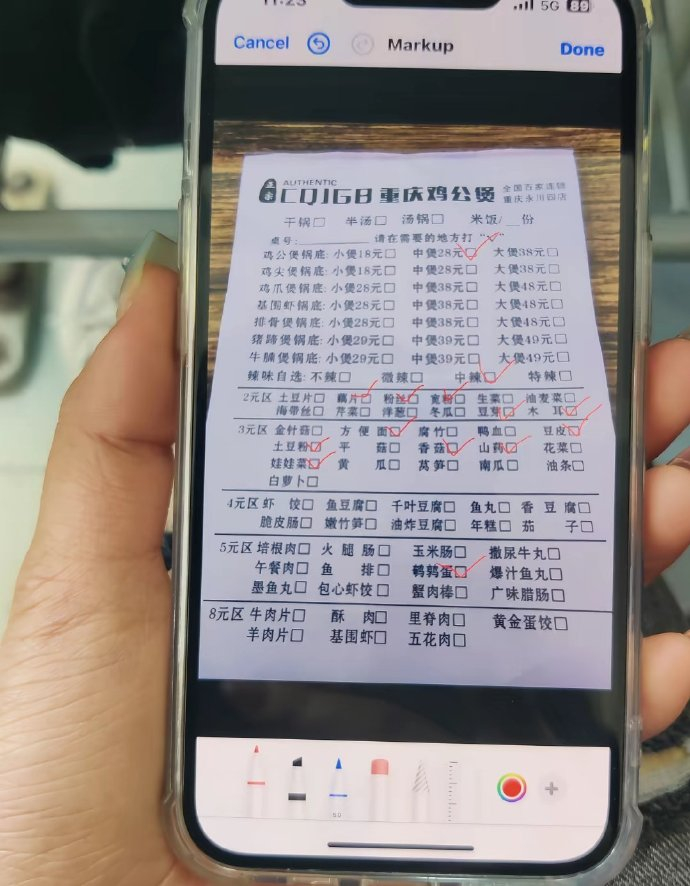 11:23 5G 89
Cancel Markup Done
AUTHENTIC
正宗 CQJGB 重庆鸡公煲 全国百家连锁
重庆永川四店
干锅□ 半汤□ 汤锅□ 米饭/__份
桌号:________ 请在需要的地方打“✓”
鸡公煲锅底: 小煲18元□ 中煲28元☑ 大煲38元□
鸡尖煲锅底: 小煲18元□ 中煲28元□ 大煲38元□
鸡爪煲锅底: 小煲28元□ 中煲38元□ 大煲48元□
基围虾锅底: 小煲28元□ 中煲38元□ 大煲48元□
排骨煲锅底: 小煲28元□ 中煲38元□ 大煲48元□
猪蹄煲锅底: 小煲29元□ 中煲39元□ 大煲49元□
牛腩煲锅底: 小煲29元□ 中煲39元□ 大煲49元□
辣味自选: 不辣□ 微辣□ 中辣☑ 特辣□
2元区 土豆片□ 藕片☑ 粉丝☑ 宽粉☑ 生菜□ 油麦菜□
海带丝□ 芹菜□ 洋葱□ 冬瓜□ 豆芽☑ 木耳☑
3元区 金针菇□ 方便面☑ 腐竹□ 鸭血□ 豆皮☑
土豆粉☑ 平菇□ 香菇☑ 山药☑ 花菜□
娃娃菜☑ 黄瓜□ 莴笋□ 南瓜□ 油条□
白萝卜□
4元区 虾饺□ 鱼豆腐□ 千叶豆腐□ 鱼丸□ 香豆腐□
脆皮肠□ 嫩竹笋□ 油炸豆腐□ 年糕□ 茄子□
5元区 培根肉□ 火腿肠□ 玉米肠□ 撒尿牛丸□
午餐肉□ 鱼排□ 鹌鹑蛋☑ 爆汁鱼丸□
墨鱼丸□ 包心虾饺□ 蟹肉棒□ 广味腊肠□
8元区 牛肉片□ 酥肉□ 里脊肉□ 黄金蛋饺□
羊肉片□ 基围虾□ 五花肉□
5.0